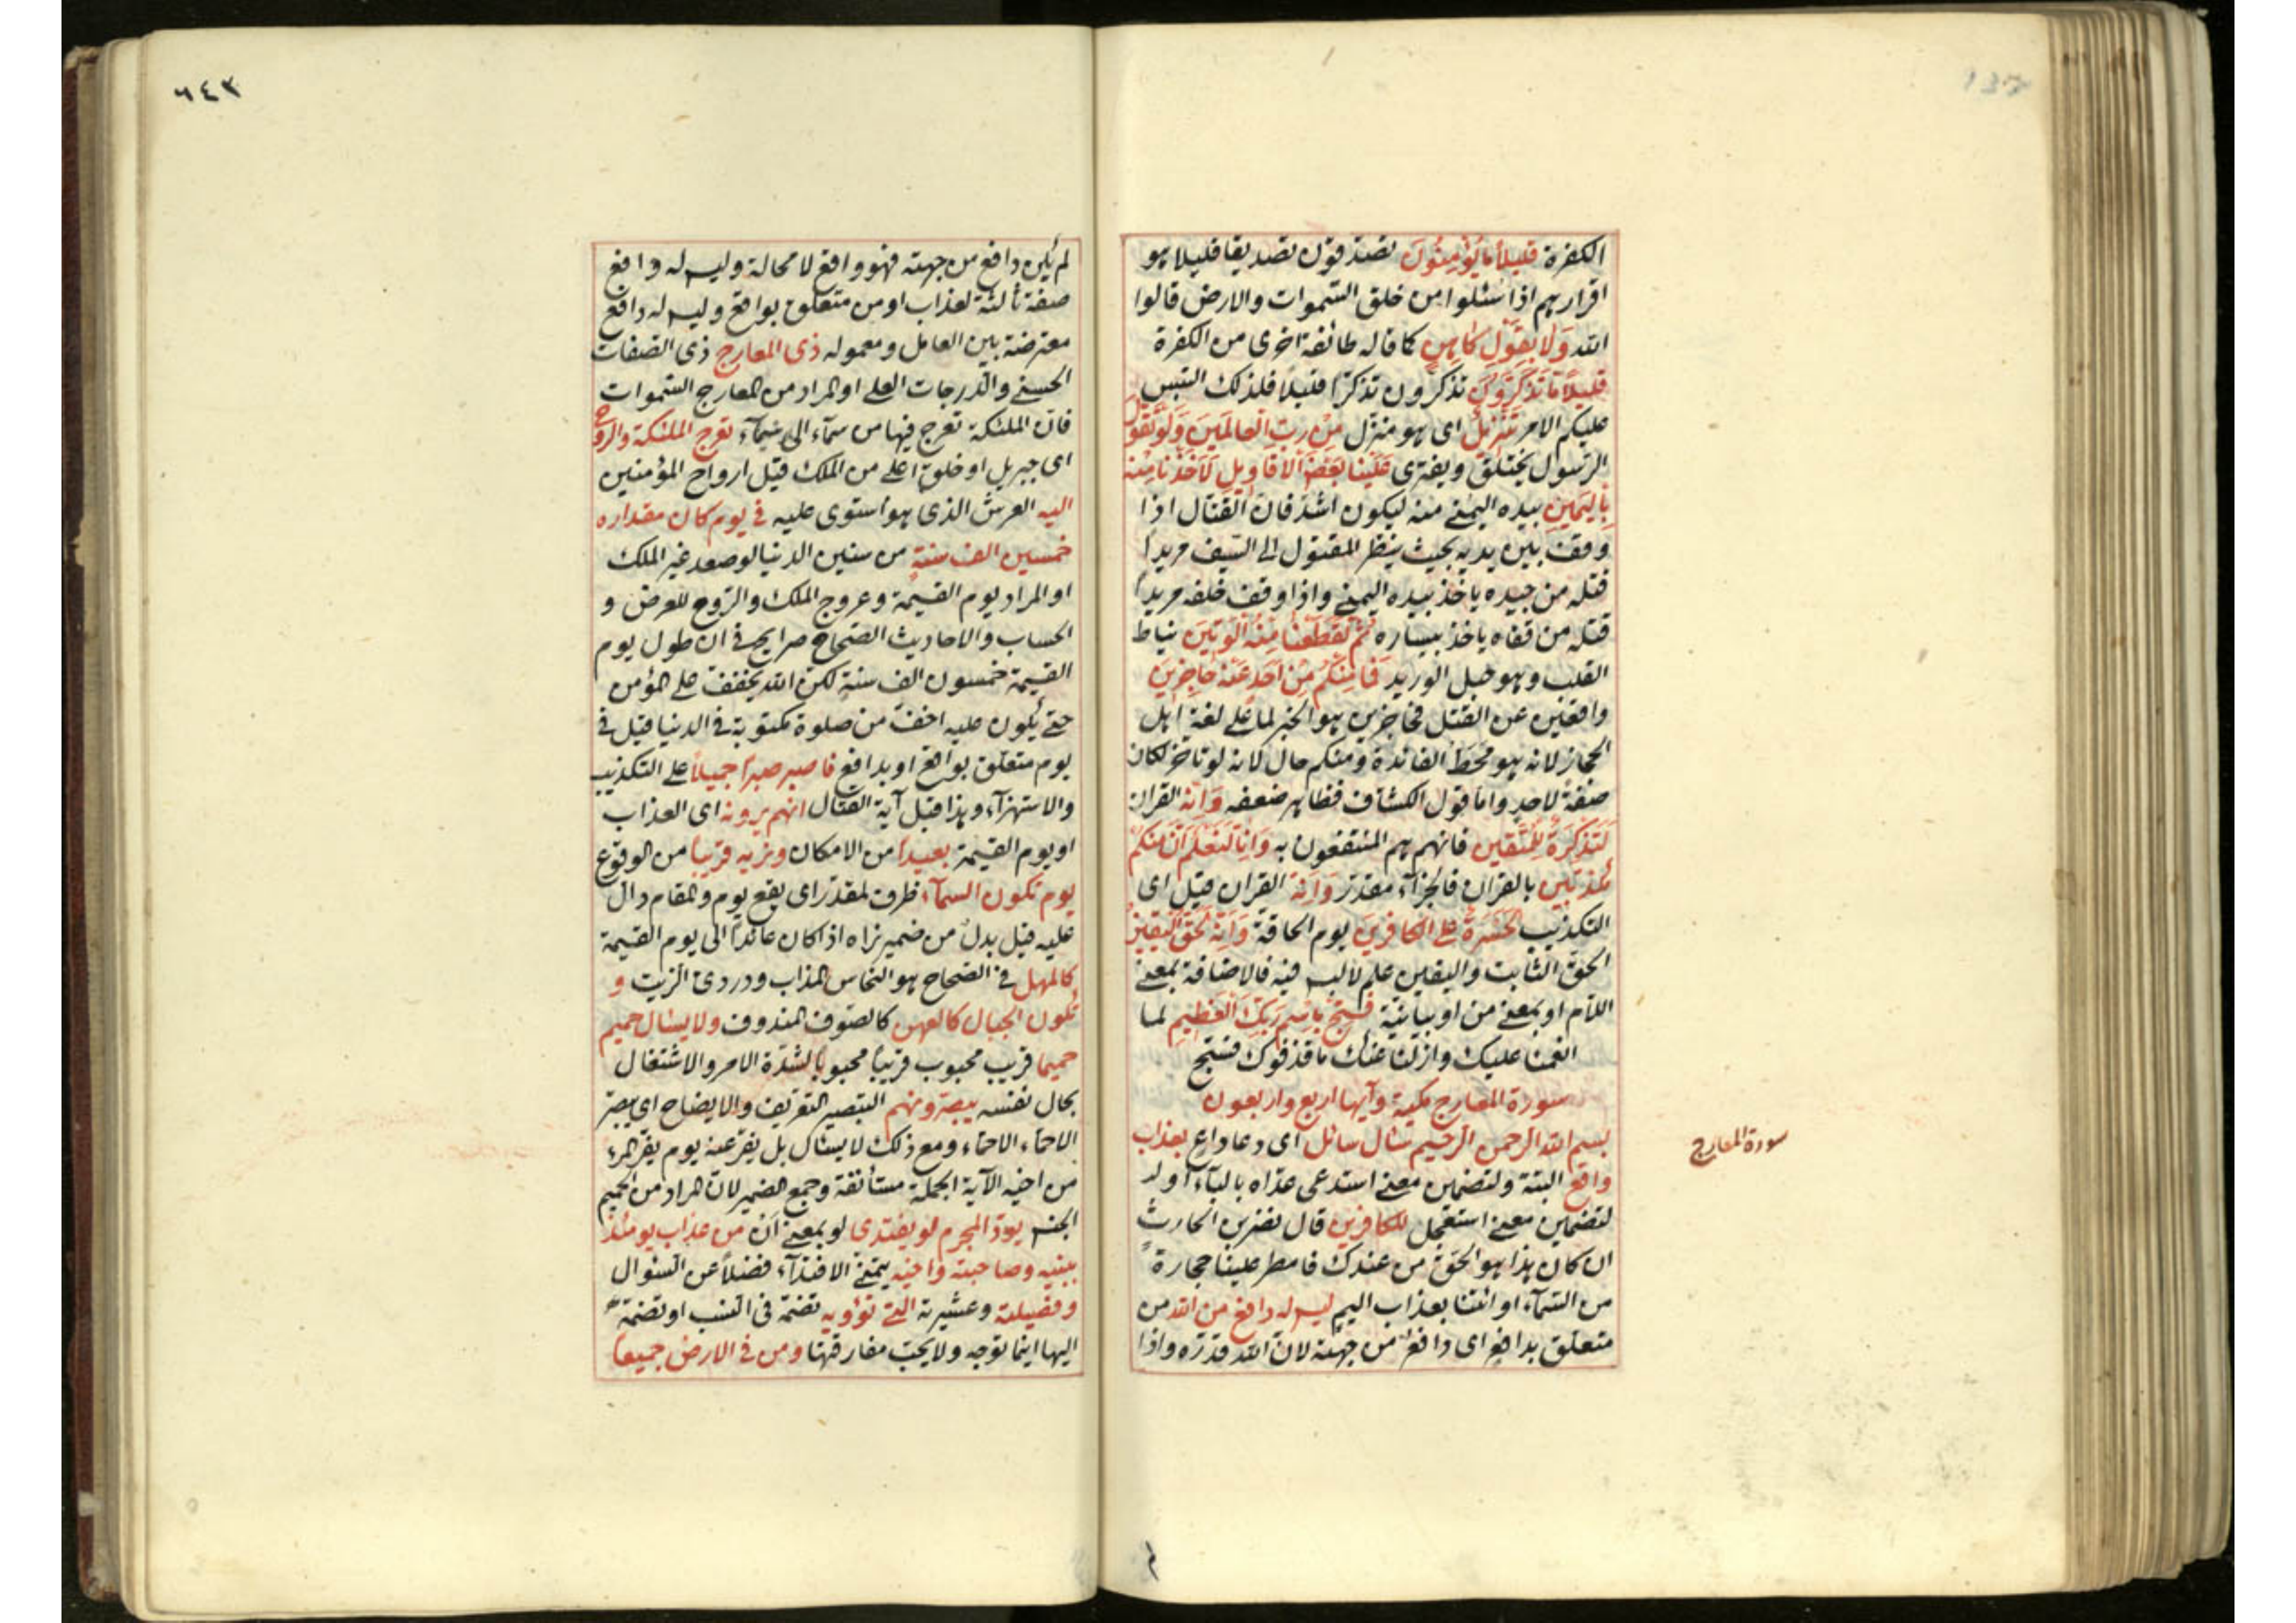 الكفرة قليلاً ما تؤمنون تصدقون تصديقا قليلا هو
اقرارهم اذا سئلوا من خلق السموات والارض قالوا
الله ولا بقول كاهن كما قاله طائفة اخرى من الكفرة
قليلاً ما تذكرون تذكرون تذكرا قليلا فلذلك التبس
عليكم الامر تنزيل اى هو منزل من رب العالمين ولو تقول
الرسول يختلق ويفترى علينا بعض الاقاويل لاخذنا منه
باليمين بيده اليمنى منه ليكون اشد فان القتال اذا
وقف بين يديه بحيث ينظر المقتول الى السيف مريداً
قتله من جيده ياخذ بيده اليمنى واذا وقف خلفه مريداً
قتله من قفاه ياخذ بيساره ثم لقطعنا منه الوتين نياط
القلب وهو حبل الوريد فما منكم من احد عنه حاجزين
دافعين عن القتل فحاجزين هو الخبر لما على لغة اهل
الحجاز لانه هو محط الفائدة ومنكم حال لانه لو تاخر لكان
صفة لاحد واما قول الكشاف فظاهر ضعفه وانه القران
لتذكرة للمتقين فانهم هم المنتفعون به وانا لنعلم ان منكم
مكذبين بالقران فالجزاء مقدر وانه القران قيل اى
التكذيب لحسرة على الكافرين يوم الحاقة وانه لحق اليقين
الحق الثابت واليقين علم لا لبس فيه فالاضافة بمعنى
اللام او بمعنى من او بيانية فسبح باسم ربك العظيم لما
انعمنا عليك وازلنا عنك ما قذفوك فسبح
سورة المعارج مكية وآيها اربع واربعون
بسم الله الرحمن الرحيم سال سائل اى دعا داع بعذاب
واقع البتة ولتضمين معنى استدعى عداه بالباء او لد
لتضمين معنى استعجل للكافرين قال نضر بن الحارث
ان كان هذا هو الحق من عندك فامطر علينا حجارة
من السماء او ائتنا بعذاب اليم ليس له دافع من الله من
متعلق بدافع اى دافع من جهته لان الله قدره واذا
سورة المعارج
٦٤٣
لم يكن دافع من جهته فهو واقع لا محالة وليس له دافع
صفة ثالثة لعذاب او من متعلق بواقع وليس له دافع
معترضة بين العامل ومعموله ذى المعارج ذى الصفات
الحسنى والدرجات العلى او المراد من المعارج السموات
فان الملئكة تعرج فيها من سماء الى سماء تعرج الملئكة والروح
اى جبريل او خلق اعلى من الملك قيل ارواح المؤمنين
اليه العرش الذى هو استوى عليه فى يوم كان مقداره
خمسين الف سنة من سنين الدنيا لو صعد غير الملك
او المراد يوم القيمة وعروج الملك والروح للعرض و
الحساب والاحاديث الصحاح صرايح فى ان طول يوم
القيمة خمسون الف سنة لكن الله يخفف على المؤمن
حتى يكون عليه اخف من صلوة مكتوبة فى الدنيا قيل فى
يوم متعلق بواقع او بدافع فاصبر صبرا جميلاً على التكذيب
والاستهزآء وهذا قبل آية القتال انهم يرونه اى العذاب
او يوم القيمة بعيدا من الامكان ونريه قريبا من الوقوع
يوم تكون السماء ظرف لمقدر اى يقع يوم والمقام دال
عليه قيل بدل من ضمير نراه اذا كان عائدا الى يوم القيمة
كالمهل فى الصحاح هو النحاس المذاب ودردى الزيت و
تكون الجبال كالعهن كالصوف المندوف ولا يسئال حميم
حميما قريب محبوب قريبا محبوبا لشدة الامر والاشتغال
بحال نفسه يبصرونهم التبصير التعريف والايضاح اى يبصر
الاحماء الاحماء ومع ذلك لا يسئال بل يفر عنه يوم يفر المرء
من اخيه الآية الجملة مستأنفة وجمع الضمير لان المراد من الحميم
الجنس يود المجرم لو يفتدى لو بمعنى ان من عذاب يومئذ
ببنيه وصاحبته واخيه يتمنى الافتداء فضلاً عن السئوال
وفصيلته وعشيرته التى تؤويه تضمه فى النسب او تضمه
اليها اينما توجه ولا يحب مفارقتها ومن فى الارض جميعا